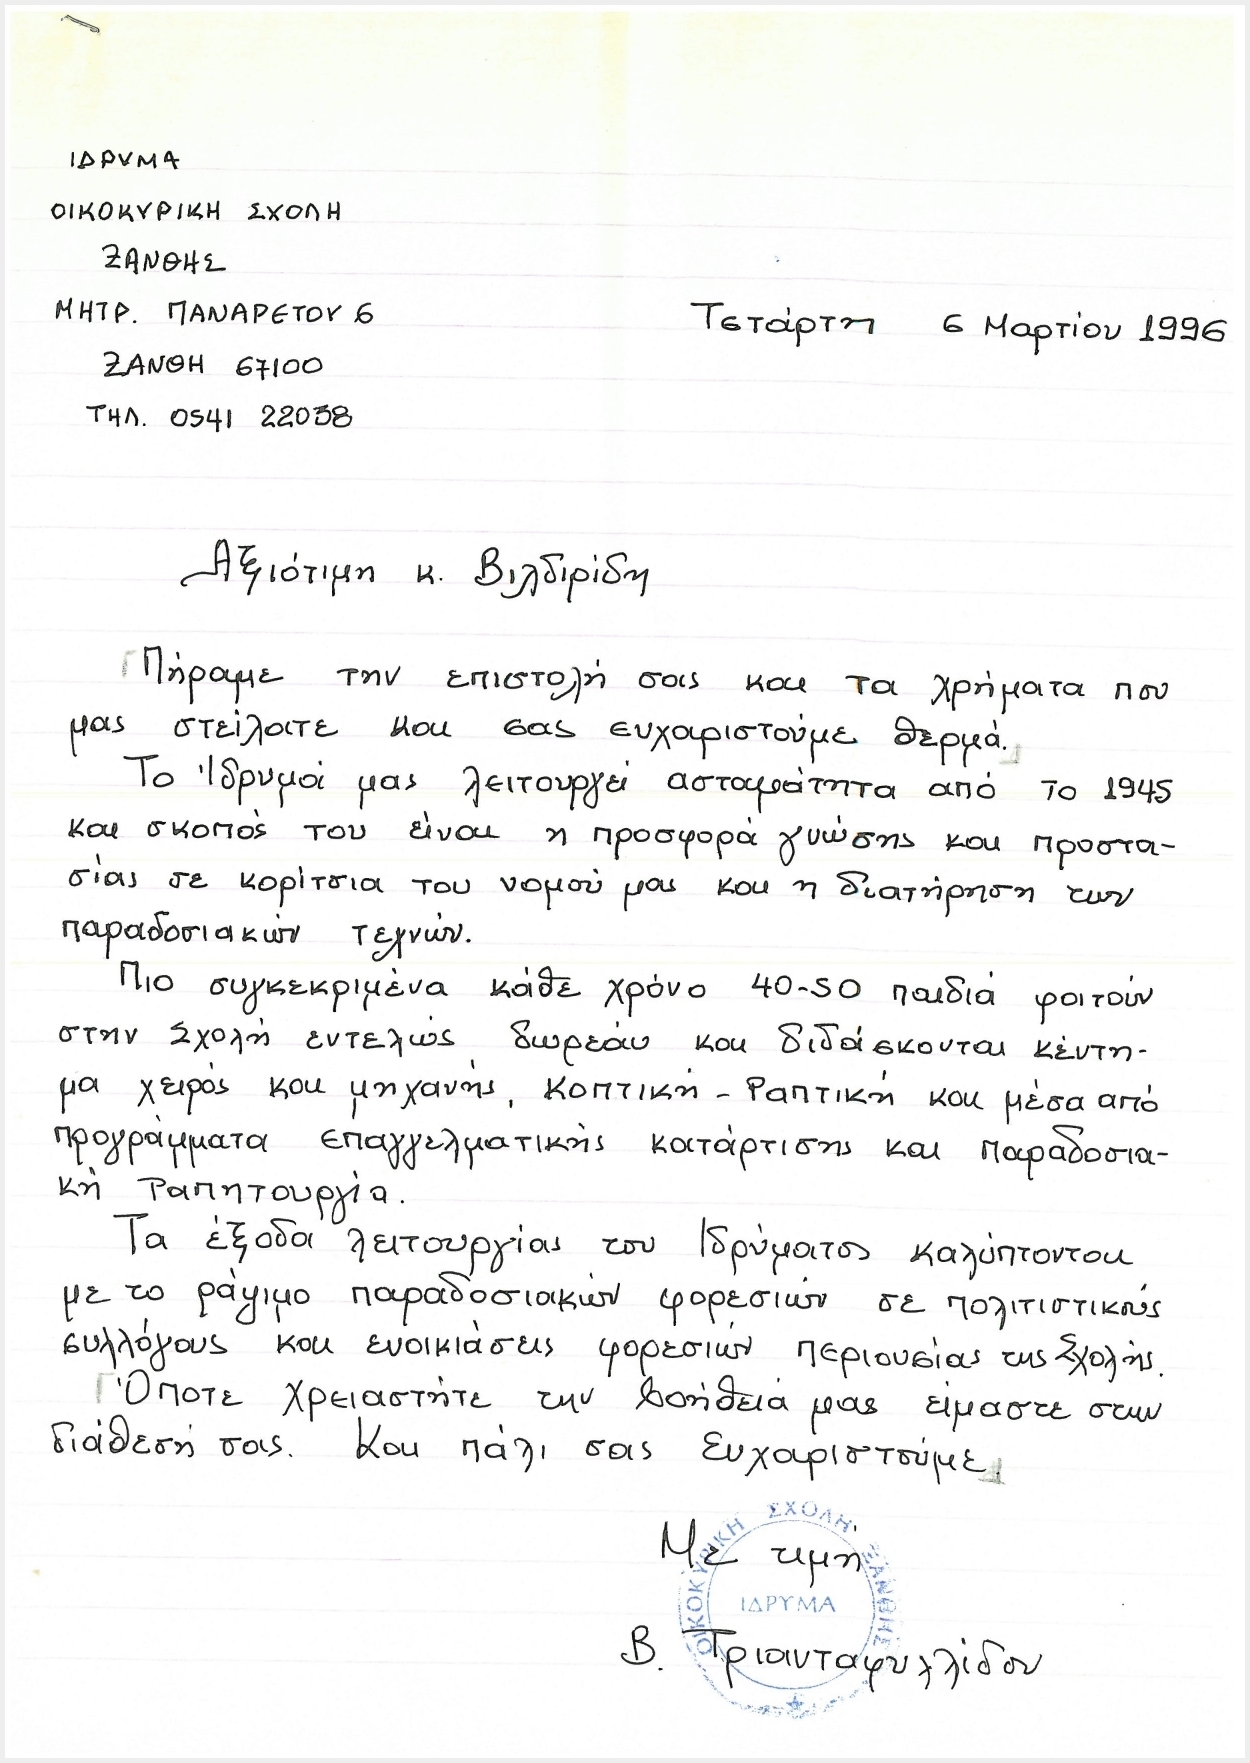 ΙΔΡΥΜΑ
ΟΙΚΟΚΥΡΙΚΗ ΣΧΟΛΗ
ΞΑΝΘΗΣ
ΜΗΤΡ. ΠΑΝΑΡΕΤΟΥ 6
ΞΑΝΘΗ 67100
ΤΗΛ. 0541 22038
Τετάρτη 6 Μαρτίου 1996
Αξιότιμη κ. Βιλδιρίδη
Πήραμε την επιστολή σας και τα χρήματα που
μας στείλατε και σας ευχαριστούμε θερμά.
Το Ίδρυμά μας λειτουργεί ασταμάτητα από το 1945
και σκοπός του είναι η προσφορά γνώσης και προστα-
σίας σε κορίτσια του νομού μας και η διατήρηση των
παραδοσιακών τεχνών.
Πιο συγκεκριμένα κάθε χρόνο 40-50 παιδιά φοιτούν
στην Σχολή εντελώς δωρεάν και διδάσκονται κέντη-
μα χειρός και μηχανής, Κοπτική - Ραπτική και μέσα από
προγράμματα επαγγελματικής κατάρτισης και παραδοσια-
κή Ταπητουργία.
Τα έξοδα λειτουργίας του Ιδρύματος καλύπτονται
με το ράψιμο παραδοσιακών φορεσιών σε πολιτιστικούς
συλλόγους και ενοικιάσεις φορεσιών περιουσίας της Σχολής.
Όποτε χρειαστήτε την βοήθειά μας είμαστε στην
διάθεσή σας. Και πάλι σας Ευχαριστούμε.
Με τιμή
ΟΙΚΟΚΥΡΙΚΗ ΣΧΟΛΗ ΞΑΝΘΗΣ
ΙΔΡΥΜΑ
Β. Τριανταφυλλίδου